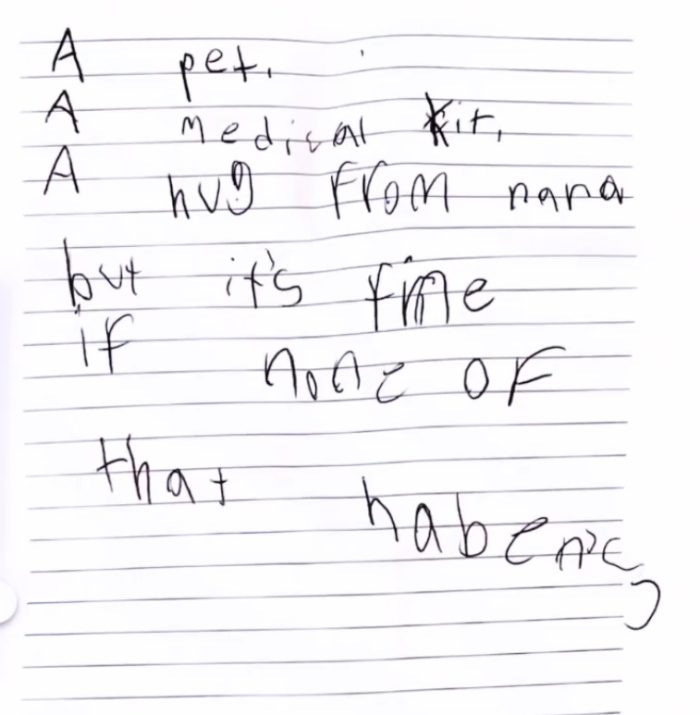 A pet.
A medical kit,
A hug From nana
but it's fine
if none OF
that habens